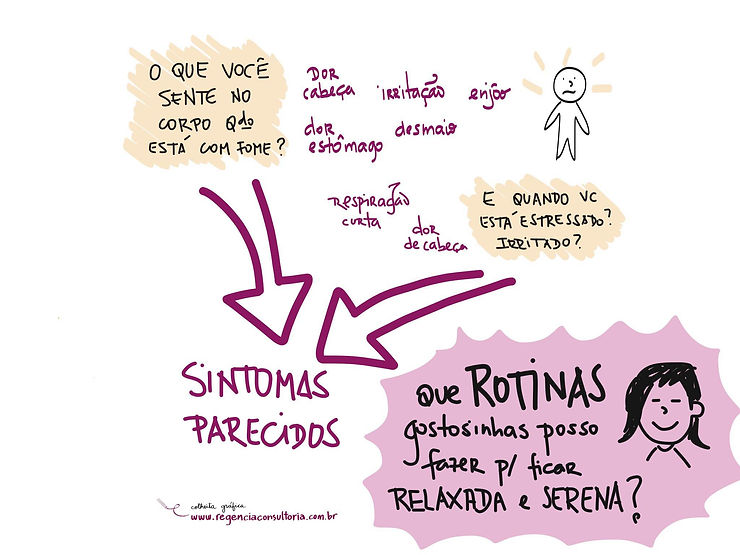 O QUE VOCÊ
SENTE NO
CORPO Qdo
ESTÁ COM FOME?
DOR
cabeça
IRRITAÇÃO
enjôo
dor
estômago
desmaio
RESPIRAÇÃO
CURTA
dor
de cabeça
E QUANDO VC
ESTÁ ESTRESSADO?
IRRITADO?
SINTOMAS
PARECIDOS
que ROTINAS
gostosinhas posso
fazer p/ ficar
RELAXADA e SERENA?
colheita gráfica
www.regenciaconsultoria.com.br